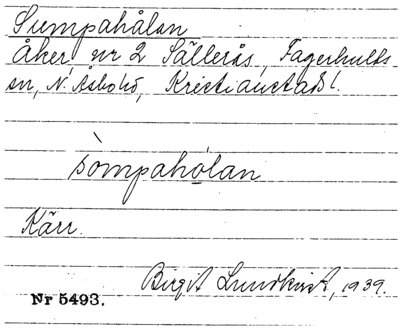 Sumpahålan
Åker, nr 2 Sällerås, Fagerhults
sn, N. Åsbohd, Kristianstads l.
sòmpahólan
Kärr.
Birgit Lundkvist, 1939.
Nr 5493.